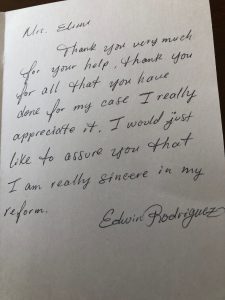 Mrs. Eliam
Thank you very much
for your help, thank you
for all that you have
done for my case I really
appreciate it. I would just
like to assure you that
I am really sincere in my
reform.
Edwin Rodriguez